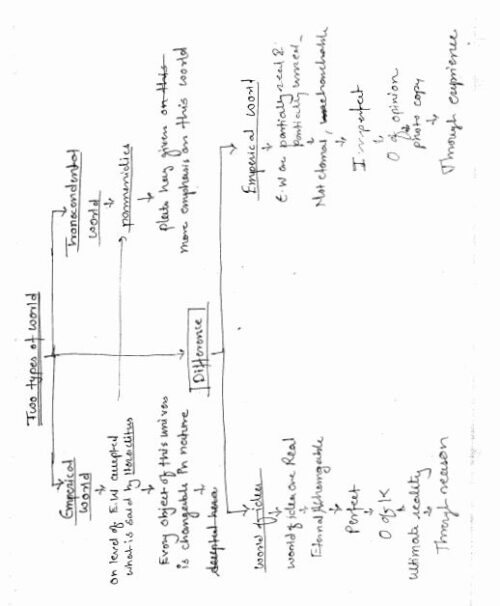 Two types of world
Emperical
world
on level of E.W accepted
what is said by Heraclitus
Every object of this univers
is changeable in nature
Transcendental
world
parmenidies
plato hey given on this
more emphasis on this world
Difference
world of idea
world of idea are Real
Eternal &
Perfect
O of K
ultimate reality
Through reason
Emperical world
E.W are partially real &
partially unreal
Not eternal,
Imperfect
O of opinion
photo copy
Through exprience